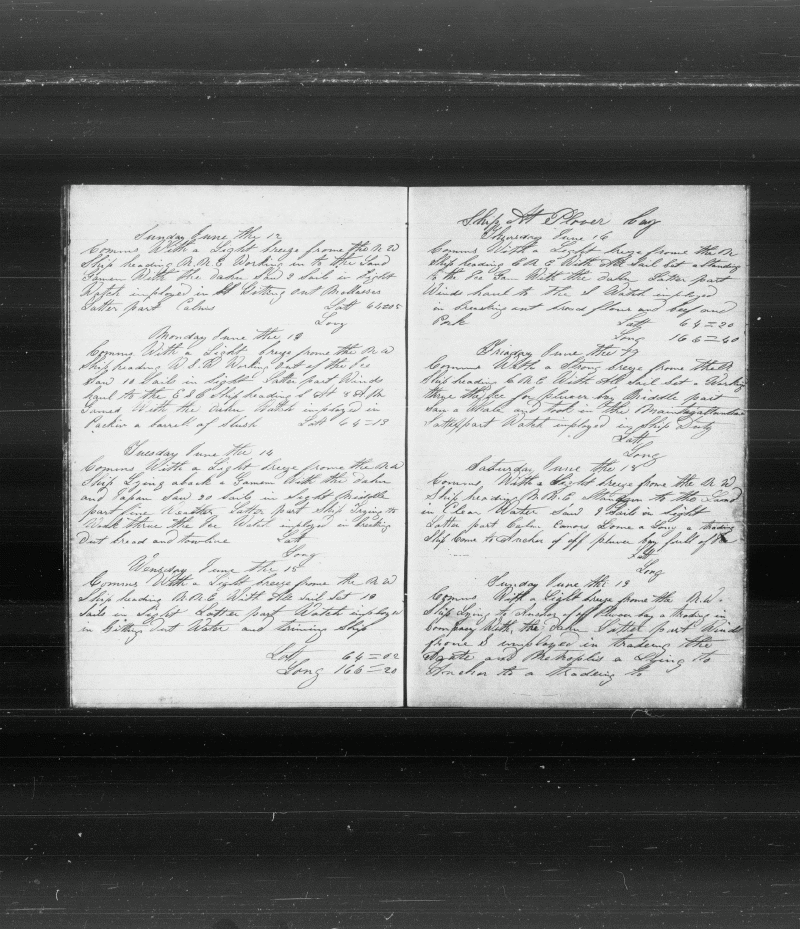 Sunday June the 12
Comms With a Light breeze frome the N W
Ship heading N N E Working in to the Land
Gamen With the dahn Saw 2 Sail in Sight
Watch imployed in Getting out Mollasses
Latter part Calms Latt 64
Long
Monday June the 13
Comms With a Light brege frome the N W
Ship heading Working out of the Ice
Saw 10 Sails in Sight Latter part Winds
haul to the E Ship heading
Gamed With the dahn Watch imployed in
a barrell of Slush Latt 64=13
Tuesday June the 14
Comms With a Light breeze frome the N W
Ship Lying aback a Gamen With the dahn
and Japan Saw 20 Sails in Sight Middle
part fine Weather Latter part Ship Trying to
Work threw the Ice Watch imployed in
Out bread and towline Latt
Long
Wensday June the 15
Comms With a Light breeze frome the N W
Ship heading N N E With All Sail Set 19
Sails in Sight Latter part Watch imployed
in Gitting Out Water and triming Ship
Latt 64=02
Long 166=20
Ship At Plover bay
Thursday June 16
Comms With a Light brege frome the N
Ship heading E N E With All Sail Set a
to the Gam With the dahn Latter part
Winds haul to the S Watch imployed
in breaking out bread flour and beef and
Pork Latt 64=20
Long 166=40
Friaday June the 17
Comms With a Strong brege frome the N
Ship heading E N E With All Sail Set a Working
threw the Ice for plover bay Middle part
Saw a Whale and took in the
Latter part Watch imployed in Ship Duty
Latt
Long
Saturday June the 18
Comms With a Light breeze frome the N W
Ship heading N N E to the Land
in Clear Water Saw 2 Sail in Sight
Latter part Calm Canoes Come a Long a trading
Ship Come to Anchor of off plover bay full of Ice
Latt
Long
Sunday June the 19
Comms With a Light breeze frome the N W
Ship Lying to Anchor of off Plover bay a trading in
Company With the dahn Latter part Winds
frome S imployed in trading the
Agate and Metropolis a Lying to
Anchor to a tradeing to